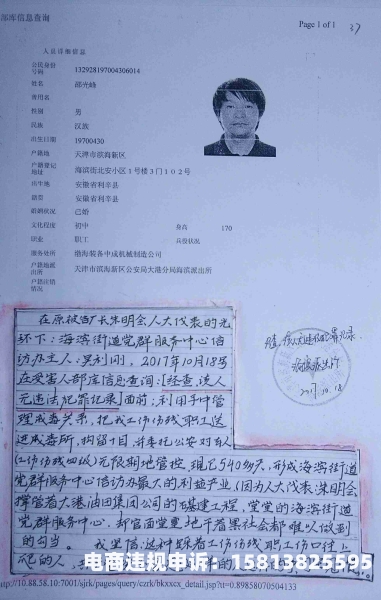 部库信息查询
Page 1 of 1
37
人员详细信息
公民身份号码
132928197004306014
姓名
邵光峰
曾用名
性别
男
民族
汉族
出生日期
19700430
户籍地
天津市滨海新区
户籍登记地址
海滨街北安小区1号楼3门102号
出生地
安徽省利辛县
籍贯
安徽省利辛县
婚姻状况
已婚
文化程度
初中
身高
170
职业
职工
兵役状况
服务处所
渤海装备中成机械制造公司
户籍地派出所
天津市滨海新区公安局大港分局海滨派出所
户籍注销情况
经查,该人无违法犯罪记录
2017.10.18
在原被告厂长朱明会人大代表的光
环下:海滨街道党群服务中心信
访办主人:吴利刚,2017年10月18号
在受害人部库信息查询:[经查,该人
无违法犯罪纪录]面前:利用手中
管理戒毒关系,把我工伤伤残职工送
进戒毒所,拘留1日并委托公安对本人
(工伤伤残四级)无限期地管控,现已540多天,形成海滨街道
党群服务中心信访办最大的利益产业(因为人大代表:朱明会
撑管着大港油田集团公司的基建工程,堂堂的海滨街道
党群服务中心,却官面堂皇地干着黑社会都难以做到
的勾当。我坚信:这种踩着工伤伤残职工伤口往上
爬的人,
电商违规申诉:15813825595
http://10.88.58.10:7001/sjrk/pages/query/czrk/bkxxcx_detail.jsp?ti=0.89858070504133